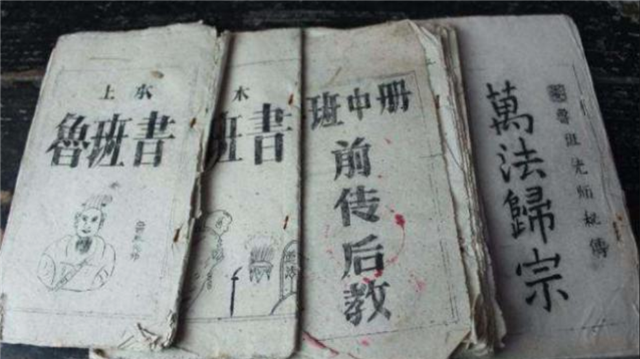 上本
魯班書
本
班書
班中册
前传后教
魯班先师秘傳
萬法歸宗